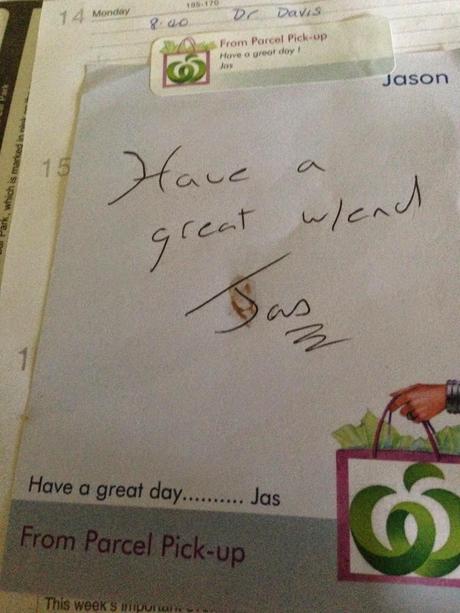 195-170
14 Monday
8.00 Dr Davis
From Parcel Pick-up
Have a great day !
Jas
Jason
15
Have a
great w/end
Jas
1
Have a great day.......... Jas
From Parcel Pick-up
This week's important
Car Park, which is marked in